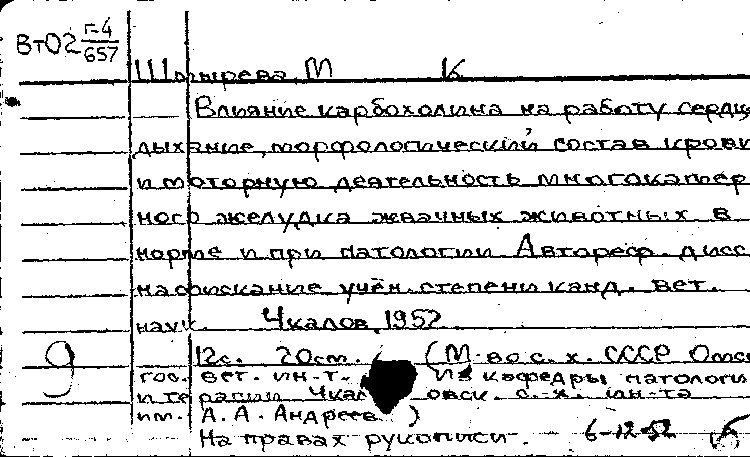 Вт02 Г-4/657
Шатырева, М К
Влияние карбохолина на работу сердц
дыхание, морфологический состав крови
и моторную деятельность многокамер
ного желудка жвачных животных в
норме и при патологии Автореф. дисс
на соискание учён. степени канд. вет.
наук. Чкалов, 1952
12с. 20см. (М-во с. х. СССР Омск
гос. вет. ин-т. Из кафедры патологи
и терапии с.-х. ин-та
9
им. А. А. Андреев )
На правах рукописи. 6-12-52